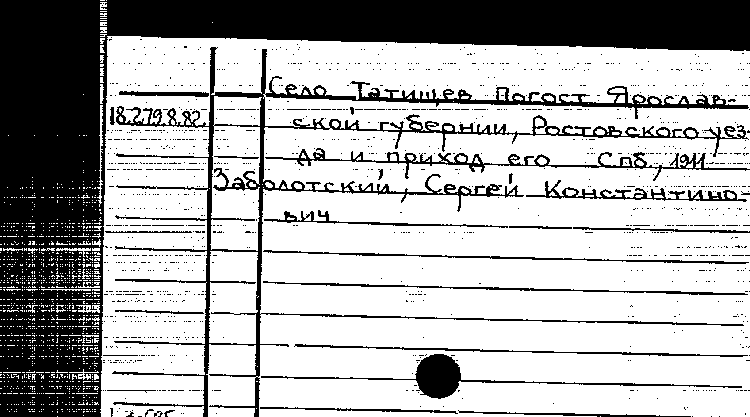 Село Татищев Погост Ярослав-
18.279.8.82. ской губернии, Ростовского уез-
да и приход его Спб., 1911
Заболотский, Сергей Константино-
вич